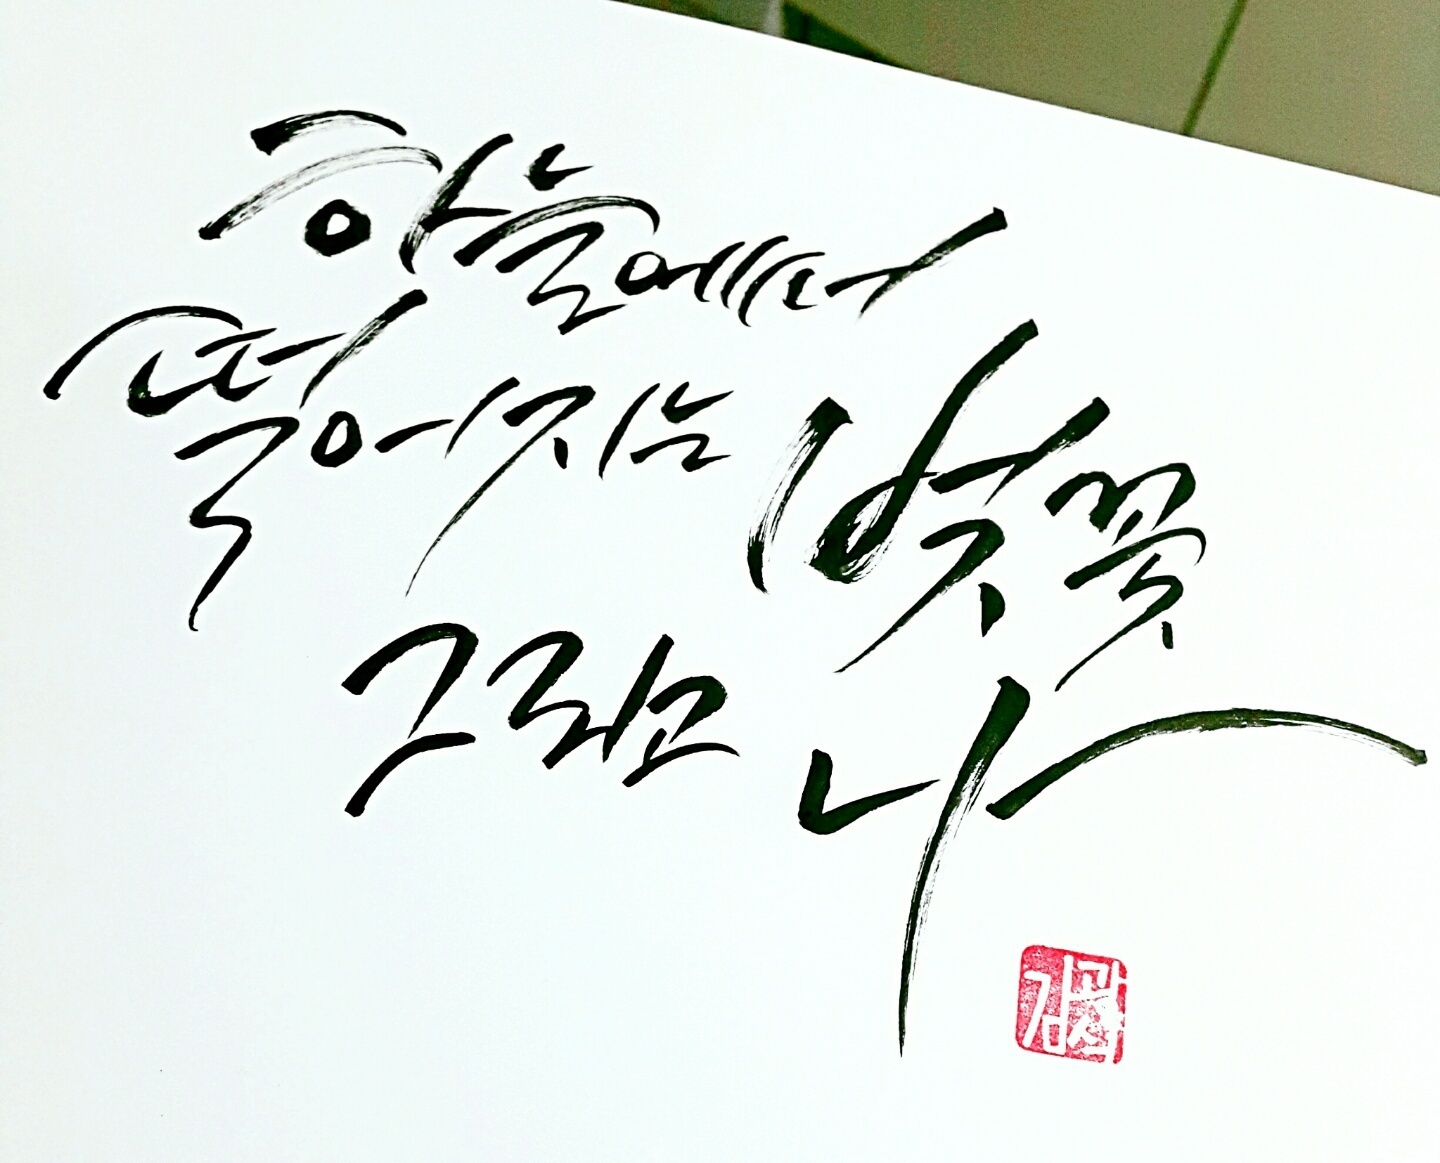 하늘에서
떨어지는 벚꽃
그리고 나